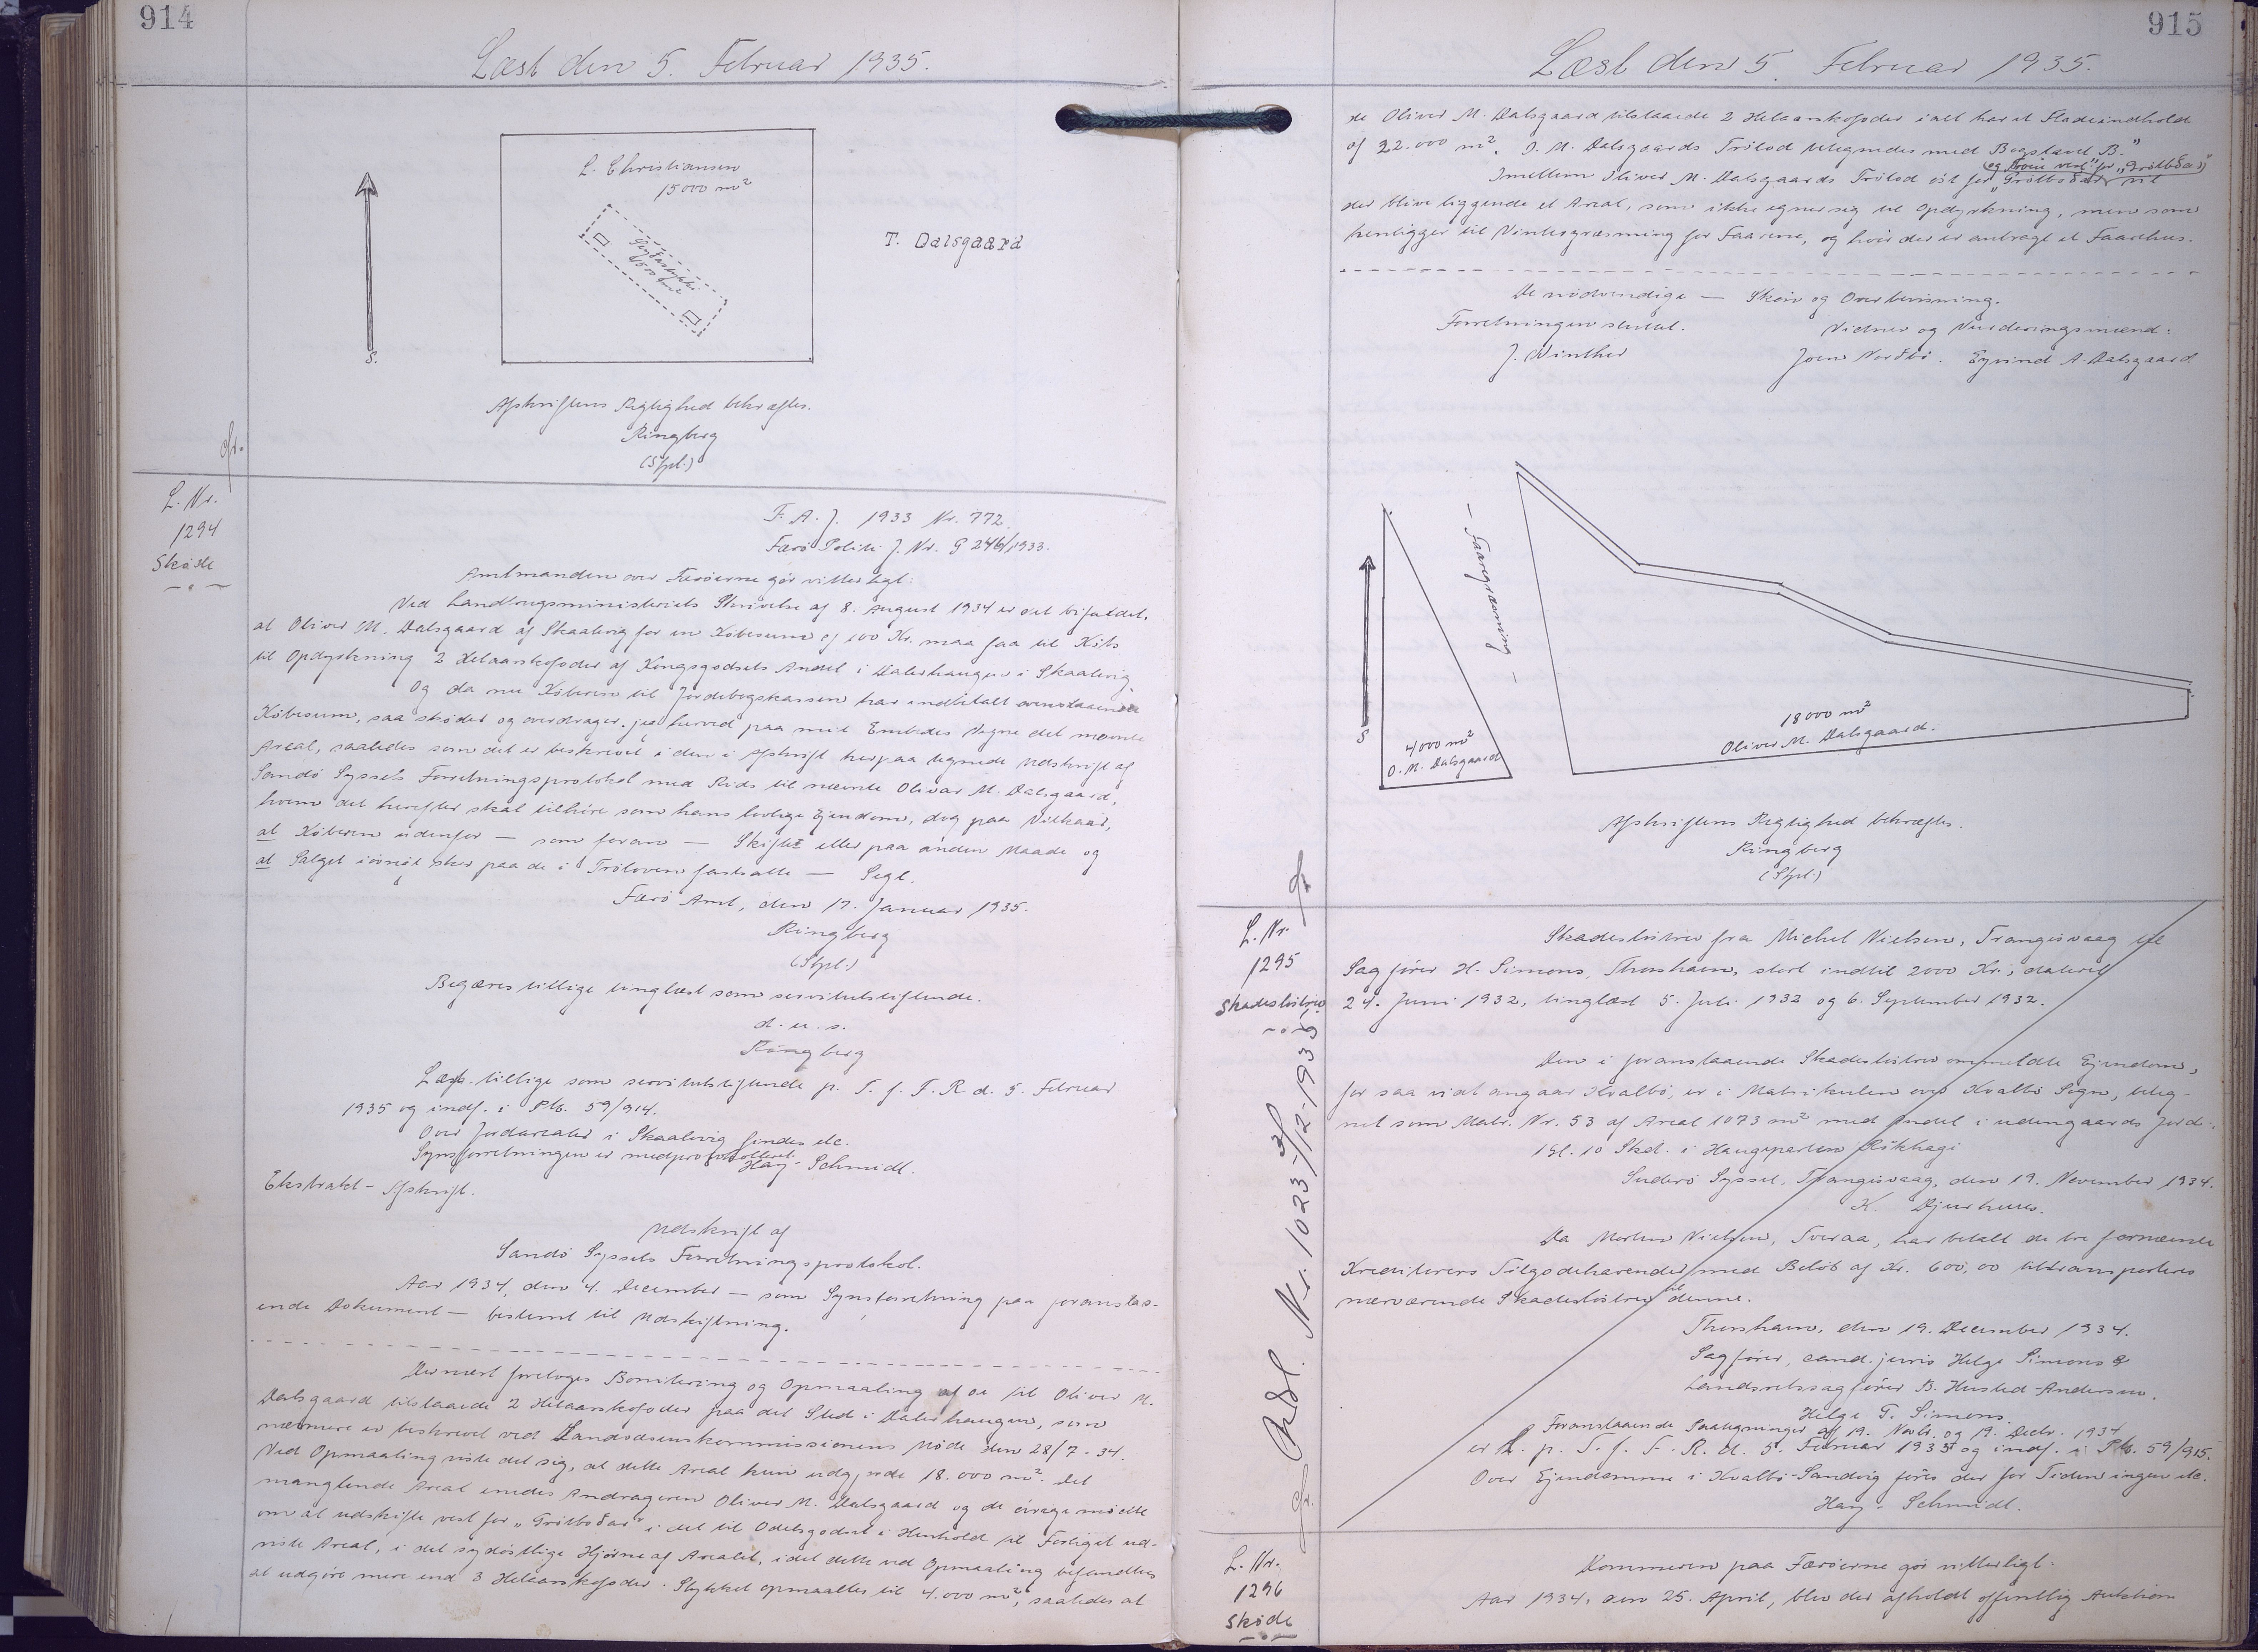 914
Læst den 5. Februar 1935.
L. Christiansen
15000 m²
T. Dalsgaard
S.
Afskriftens Rigtighed bekræftes.
Ringberg
(Stpl.)
L. Nr.
1294
Skøde
F. A. J. 1933 Nr. 772.
Færø Politi J. Nr. G 246/1933.
Amtmanden over Færøerne gør vitterligt:
Ved Landbrugsministeriets Skrivelse af 8. August 1934 er det bifaldet,
at Oliver M. Dalsgaard af Skaalevig for en Købesum af 100 Kr. maa faa til Købs
til Opdyrkning 2 Helaarskofoder af Kongsgodsets Andel i Dalerhaugen i Skaalevig.
Og da nu Køberen til Jordebogskassen har indbetalt ovenstaaende
Købesum, saa skøder og overdrager jeg herved paa mit Embedes Vegne det nævnte
Areal, saaledes som det er beskrevet i den i Afskrift herpaa tegnede Udskrift af
Sandø Syssels Forretningsprotokol med Rids til nævnte Olivar M. Dalsgaard,
hvem det herefter skal tilhøre som hans lovlige Ejendom, dog paa Vilkaar,
at Køberen udenfor — som foran — Skifte eller paa anden Maade og
at Salget iøvrigt sker paa de i Trøloven fastsatte — Segl.
Færø Amt, den 17. Januar 1935.
Ringberg
(Stpl.)
Begæres tillige tinglæst som servitutstiftende.
d. u. s.
Ringberg
Læst tillige som servitutstiftende p. T. f. F. R. d. 5. Februar
1935 og indf. i Ptk. 59/914.
Over Jordarealer i Skaalevig findes etc.
Synsforretningen er medprotokolleret.
Hay-Schmidt.
Ekstrakt-Afskrift.
Udskrift af
Sandø Syssels Forretningsprotokol.
Aar 1934, den 4. December — som Synsforretning paa foranstaa-
ende Dokument — bestemt til Udskiftning.
Dernæst foretoges Bonitering og Opmaaling af de til Oliver M.
Dalsgaard tilstaaede 2 Helaarskofoder paa det Sted i Dalerhaugen, som
nærmere er beskrevet ved Landvæsenskommissionens Møde den 28/7-34.
Ved Opmaaling viste det sig, at dette Areal kun udgjorde 18.000 m². Det
manglende Areal enedes Andrageren Oliver M. Dalsgaard og de øvrige mødte
om at udskifte vest for „Grótboðar" i det til Odelsgodset i Henhold til Forliget ud-
viste Areal, i det sydøstlige Hjørne af Arealet, idet dette ved Opmaaling befandtes
at udgøre mere end 3 Helaarskofoder. Stykket opmaaltes til 4.000 m², saaledes at
915
Læst den 5. Februar 1935.
de Oliver M. Dalsgaard tilstaaede 2 Helaarskofoder ialt har et Fladeindhold
af 22.000 m². O. M. Dalsgaards Trølod betegnedes med Bogstavet B."
Imellem Oliver M. Dalsgaards Trølod øst for „Grótboðar" vil
der blive liggende et Areal, som ikke egner sig til Opdyrkning, men som
henligger til Vintergræsning for Faarene, og hvor der er anbragt et Faarehus.
De nødvendige — Skøn og Overbevisning.
Forretningen sluttet.
Vidner og Vurderingsmænd:
J. Winther
Joen Norðbø. Eyvind A. Dalsgaard
— Faaregræsning —
S
4000 m²
O. M. Dalsgaard
18000 m²
Oliver M. Dalsgaard.
Afskriftens Rigtighed bekræftes.
Ringberg
(Stpl.)
L. Nr.
1295
Skadesløsbrev
Skadesløsbrev fra Michel Nielsen, Trangisvaag til
Sagfører H. Simons, Thorshavn, stort indtil 2000 Kr., dateret
24. Juni 1932, tinglæst 5. Juli 1932 og 6. September 1932.
Den i foranstaaende Skadesløsbrev ommeldte Ejendom,
for saa vidt angaar Kvalbø, er i Matrikulen over Kvalbø Sogn, beteg-
net som Matr. Nr. 53 af Areal 1073 m² med Andel i udengaards Jord:
1 Gl. 10 Skd. i Haugeparten Rókhagi
Suderø Syssel, Trangisvaag, den 19. November 1934.
K. Djurhuus.
Da Morten Nielsen, Tveraa, har betalt de tre fornævnte
Kreditorers Tilgodehavender med Beløb af Kr. 600,00 transporteres
nærværende Skadesløsbrev til denne.
Thorshavn, den 19. December 1934.
Sagfører, cand. juris Helge Simons &
Landsretssagfører B. Husted-Andersen.
Helge T. Simons.
Foranstaaende Paategninger af 19. Novbr. og 19. Decbr. 1934
er L. p. T. f. F. R. d. 5. Februar 1935 og indf. i Ptk. 59/915.
Over Ejendomme i Kvalbø-Sandvig føres der for Tiden ingen etc.
Hay-Schmidt.
Udsl. Nr. 1023 - 3/12-1935
L. Nr.
1296
Skøde
Dommeren paa Færøerne gør vitterligt:
Aar 1934, den 25. April, blev der afholdt offentlig Auktion